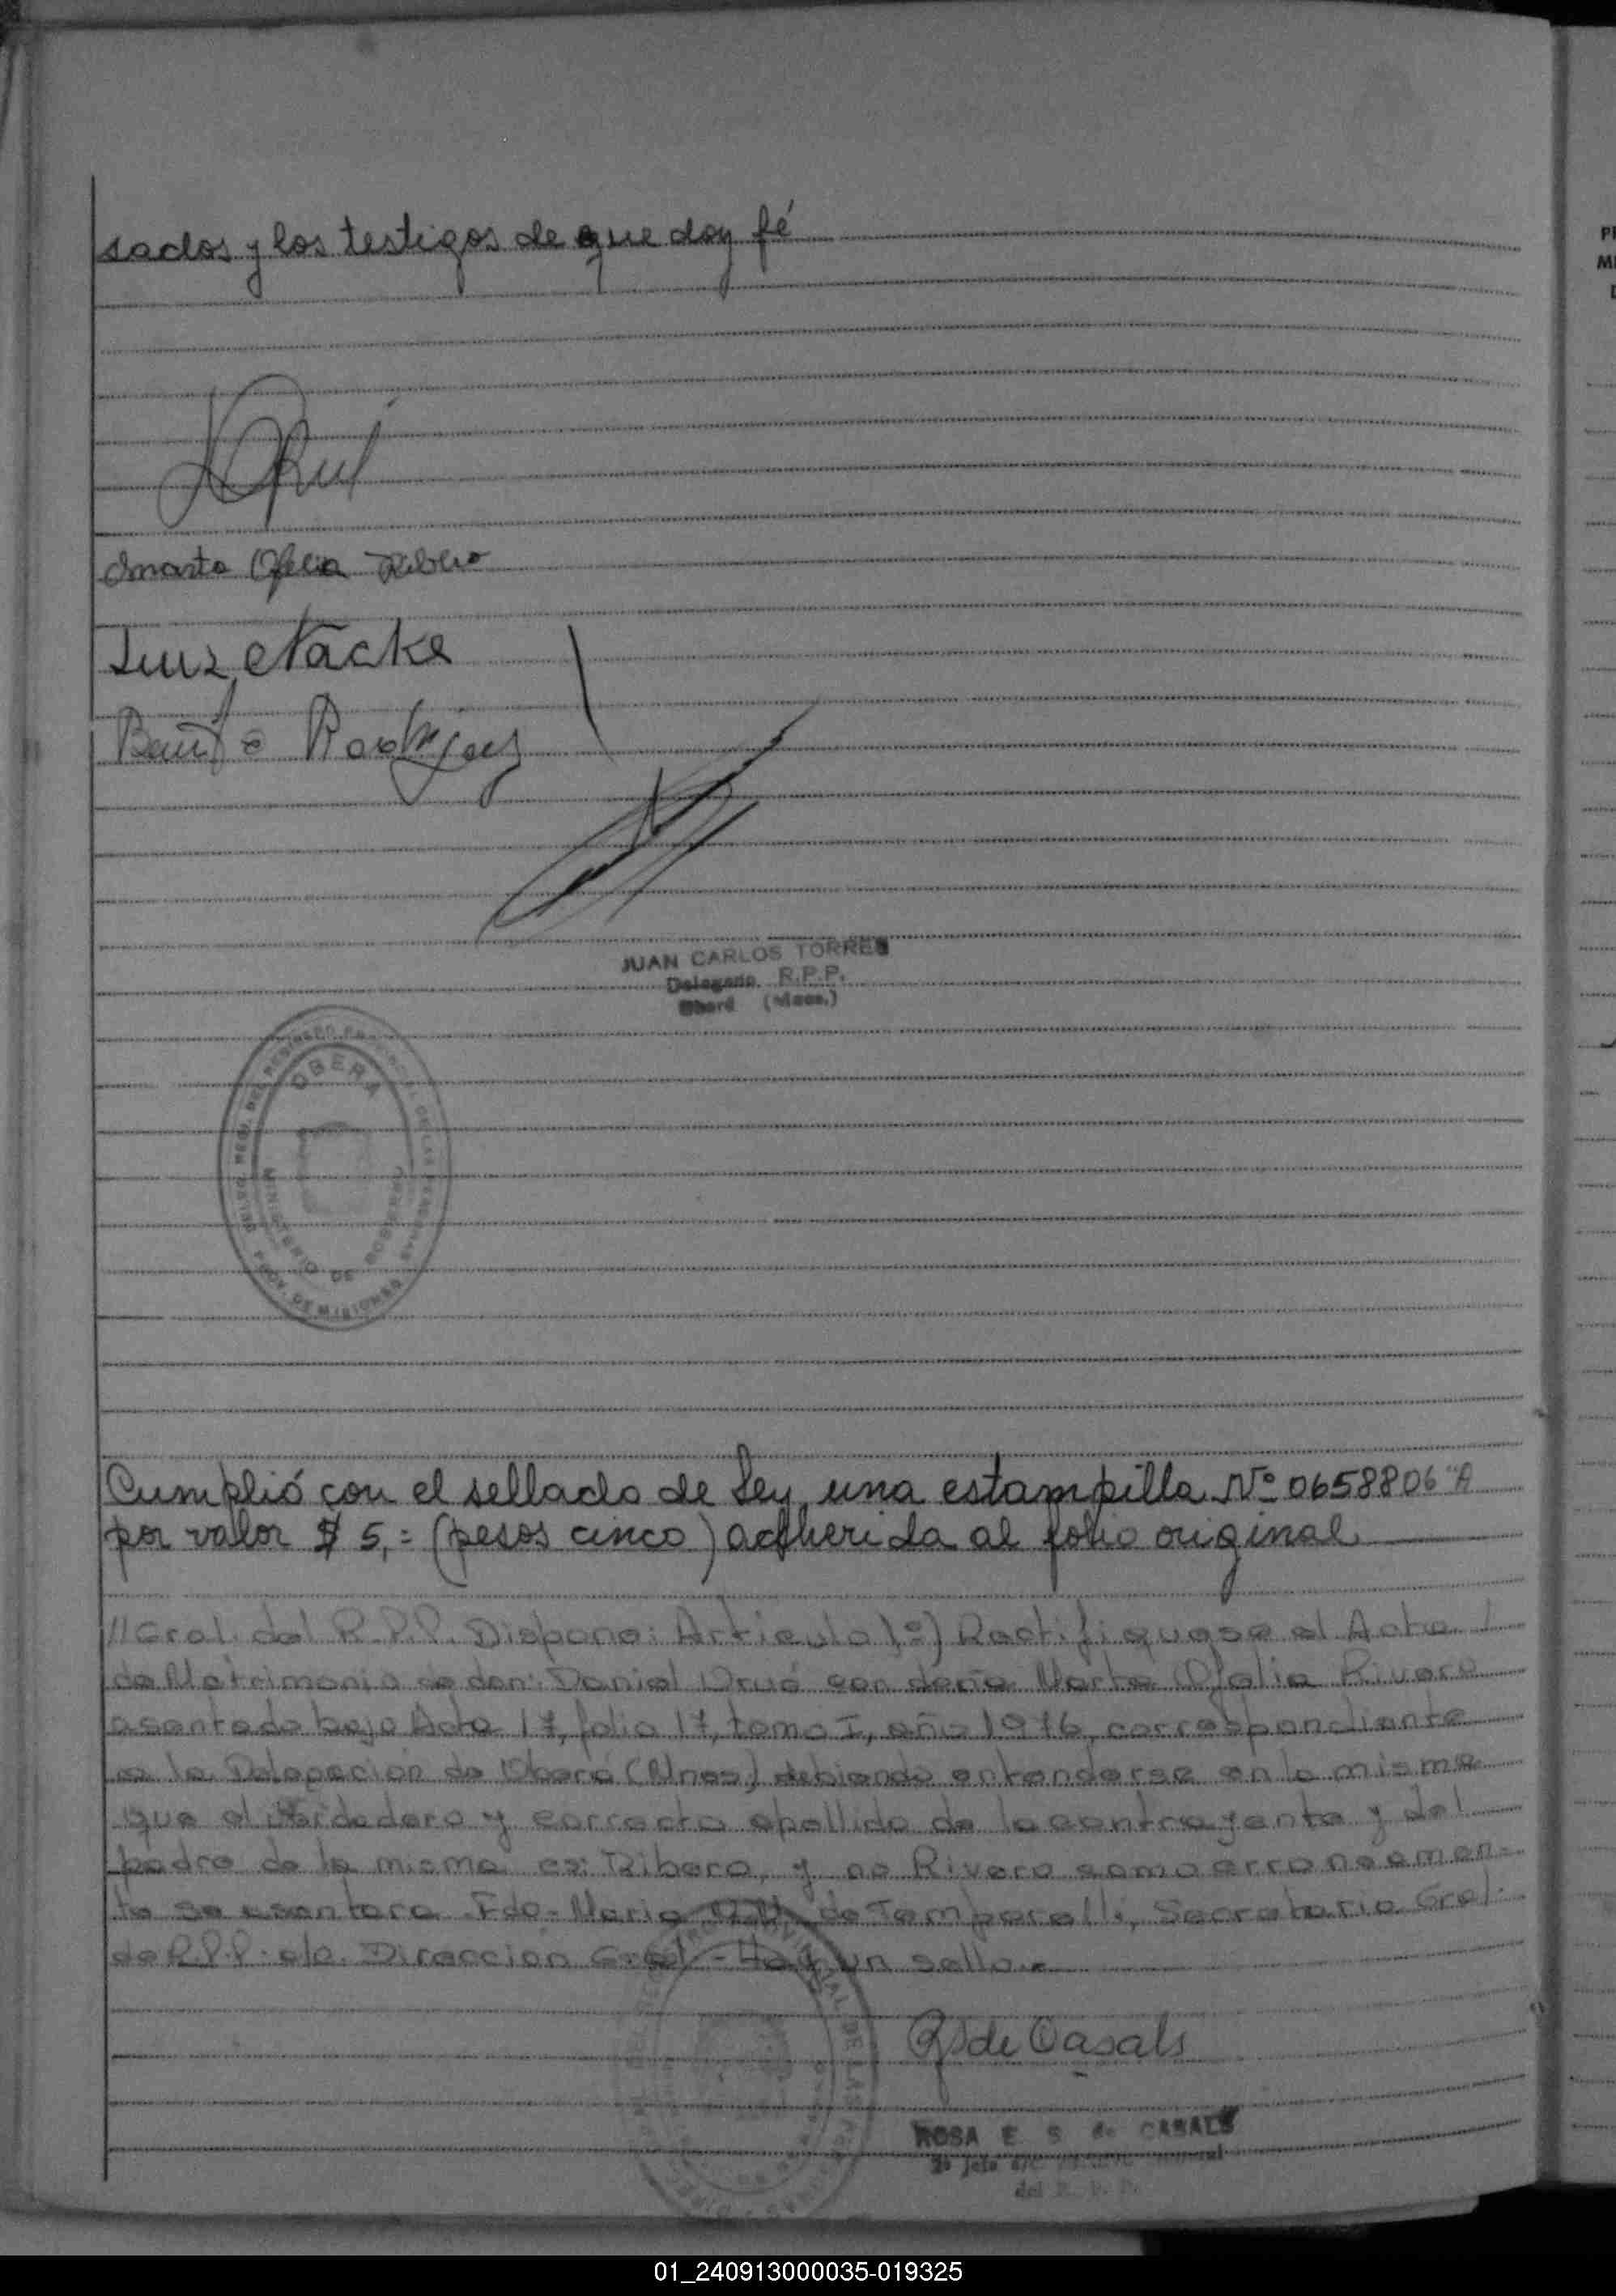 sados y los testigos de que doy fé
Marta Ofelia Ribero
Luiz Nacke
Benito Rodriguez
JUAN CARLOS TORRES
Delegado R.P.P.
Oberá (Mnes.)
OBERA
MINISTERIO DE GOBIERNO
PROV. DE MISIONES
Cumplió con el sellado de Ley, una estampilla Nº 0658806 "A
por valor $ 5,= (pesos cinco) adherida al folio original
//Gral. del R.P.P. Dispone: Artículo 1º) Rectifíquese el Acta /
de Matrimonio de don: Daniel Urué con doña Marta Ofelia Rivero
asentado bajo Acta 17, folio 17, tomo I, año 1976, correspondiente
a la Delegación de Oberá (Mnes.) debiendo entenderse en la misma
que el verdadero y correcto apellido de la contrayente y del
padre de la misma es: Ribero, y no Rivero como erroneamen-
te se asentara. Fdo- Maria de Temporelli, Secretaria Gral.
de R.P.P. a/c. Dirección Gral. - Hay un sello.-
R S de Casals
ROSA E. S. de CASALS
2º Jefe
del R. P. P.
01_240913000035-019325